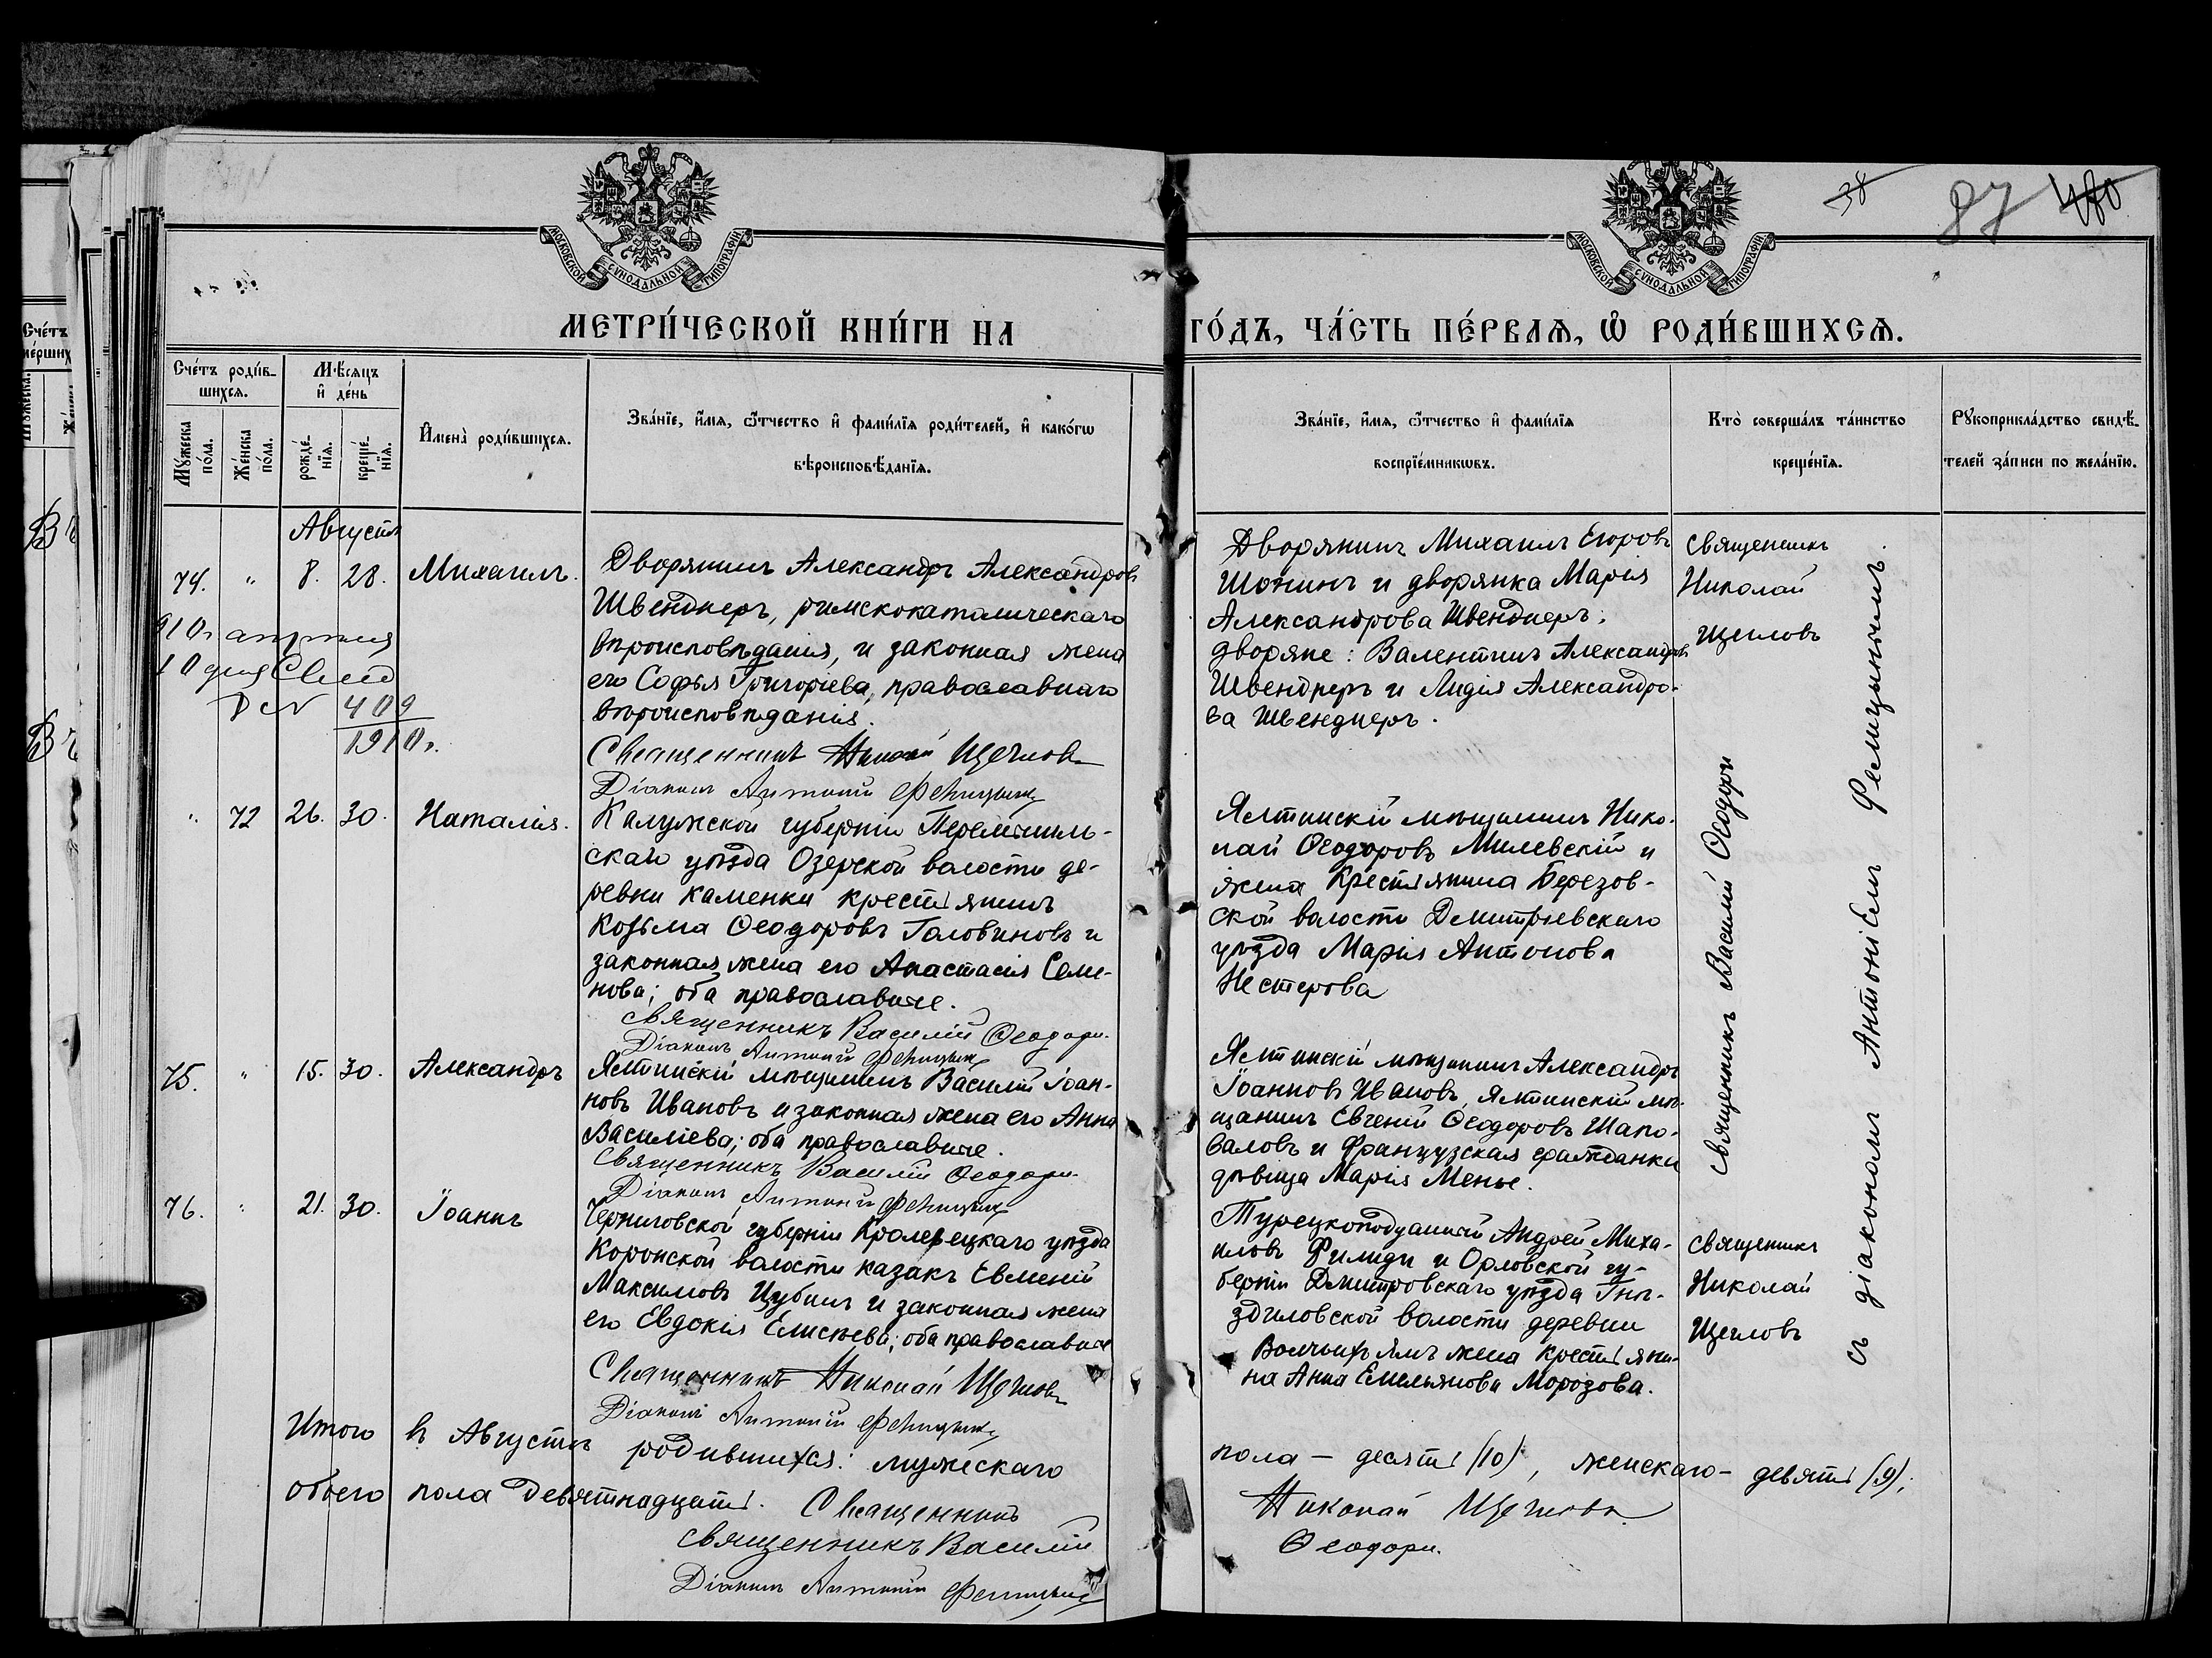 38 87 480
МОСКОВСКОЙ СУНОДАЛЬНОЙ ТИПОГРАФІИ
МОСКОВСКОЙ СУНОДАЛЬНОЙ ТИПОГРАФІИ
МЕТРИ́ЧЕСКОЙ КНИ́ГИ НА ГО́ДЪ, ЧА́СТЬ ПЕ́РВАѦ, Ѡ҆ РОДИ́ВШИХСѦ.
Сче́тъ роди́в-
шихсѧ.
Мѣ́сяцъ
и҆ де́нь
Му́жеска
по́ла.
Же́нска
по́ла.
рожде́-
нїѧ.
креще́-
нїѧ.
И҆мена̀ роди́вшихсѧ.
Зва́нїе, и҆́мѧ, ѻ҆́тчество и҆ фами́лїѧ роди́телей, и҆ како́гѡ
вѣроисповѣ́данїѧ.
Зва́нїе, и҆́мѧ, ѻ҆́тчество и҆ фами́лїѧ
воспрїе́мникѡвъ.
Кто̀ соверша́лъ та́инство
креще́нїѧ.
Рꙋкоприкла́дство свидѣ́-
телей за́писи по жела́нїю.
Августъ
74. " 8. 28. Михаилъ.
Дворянинъ Александръ Александровъ
Швенднеръ, римскокатолическаго
вѣроисповѣданія, и законная жена
его Софья Григоріева, православнаго
вѣроисповѣданія.
Священникъ Николай Щегловъ
Діаконъ Антоній Фелицынъ
910г апрѣля
10 дня Свид
№ 409
1910г.
Дворянинъ Михаилъ Егоровъ
Шонинъ и дворянка Марія
Александрова Швенднеръ;
дворяне: Валентинъ Александровъ
Швенднеръ и Лидія Александро-
ва Швенднеръ.
Священникъ
Николай
Щегловъ
" 72 26. 30. Наталія.
Калужской губерніи Перемышль-
скаго уѣзда Озерской волости де-
ревни Каменки крестьянинъ
Козьма Ѳеодоровъ Головиновъ и
законная жена его Анастасія Семе-
нова; оба православные.
Священникъ Василій Ѳеодори.
Діаконъ Антоній Фелицынъ
Ялтинскій мѣщанинъ Нико-
лай Ѳеодоровъ Милевскій и
жена крестьянина Березов-
ской волости Дмитріевскаго
уѣзда Марія Антонова
Нестерова
Священникъ Василій Ѳеодори
съ діакономъ Антоніемъ Фелицынымъ.
75. " 15. 30. Александръ
Ялтинскій мѣщанинъ Василій Іоан-
новъ Ивановъ и законная жена его Анна
Василіева; оба православные.
Священникъ Василій Ѳеодори.
Діаконъ Антоній Фелицынъ
Ялтинскій мѣщанинъ Александръ
Іоанновъ Ивановъ, Ялтинскій мѣ-
щанинъ Евгеній Ѳеодоровъ Шапо-
валовъ и Французская гражданка
дѣвица Марія Менье.
76. " 21. 30. Іоаннъ
Черниговской губерніи Кролевецкаго уѣзда
Коропской волости казакъ Евменій
Максимовъ Цубинъ и законная жена
его Евдокія Елисѣева; оба православные
Священникъ Николай Щегловъ
Діаконъ Антоній Фелицынъ
Турецкоподданный Андрей Миха-
иловъ Филиди и Орловской гу-
берніи Дмитровскаго уѣзда Гнѣ-
здиловской волости деревни
Волчьихъ Ямъ жена крестьяни-
на Анна Емельянова Морозова.
Священникъ
Николай
Щегловъ
Итого въ Августѣ родившихся: мужескаго пола – десять (10), женскаго – девять (9);
обоего пола девятнадцать. Священникъ Николай Щегловъ.
Священникъ Василій Ѳеодори.
Діаконъ Антоній Фелицынъ